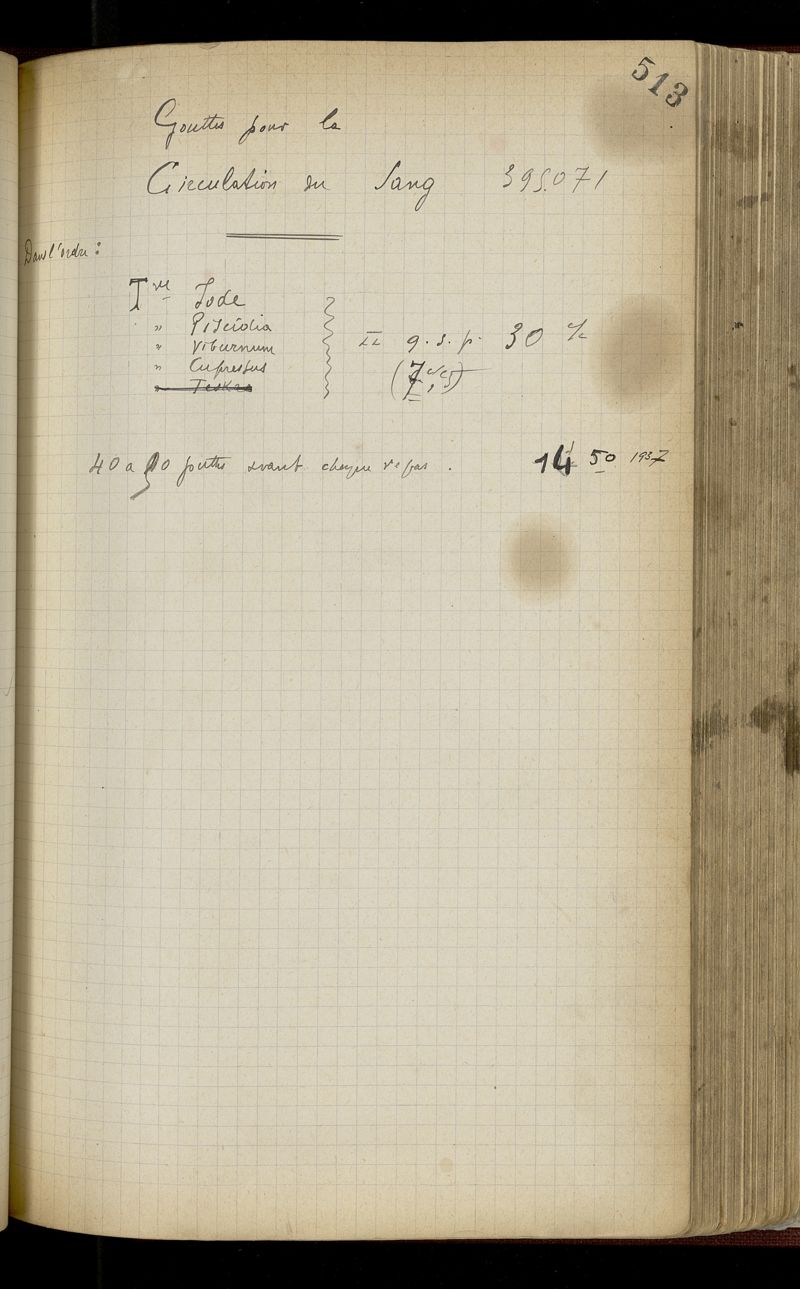 513
Gouttes pour la
Circulation du Sang 395.071
Dans l'ordre :
Tre Iode
" Piscidia
" Viburnum
" Cupressus
āā q. s. p. 30 cc
(7cc,5)
40 a 50 gouttes avant chaque repas . 14f 50 1937